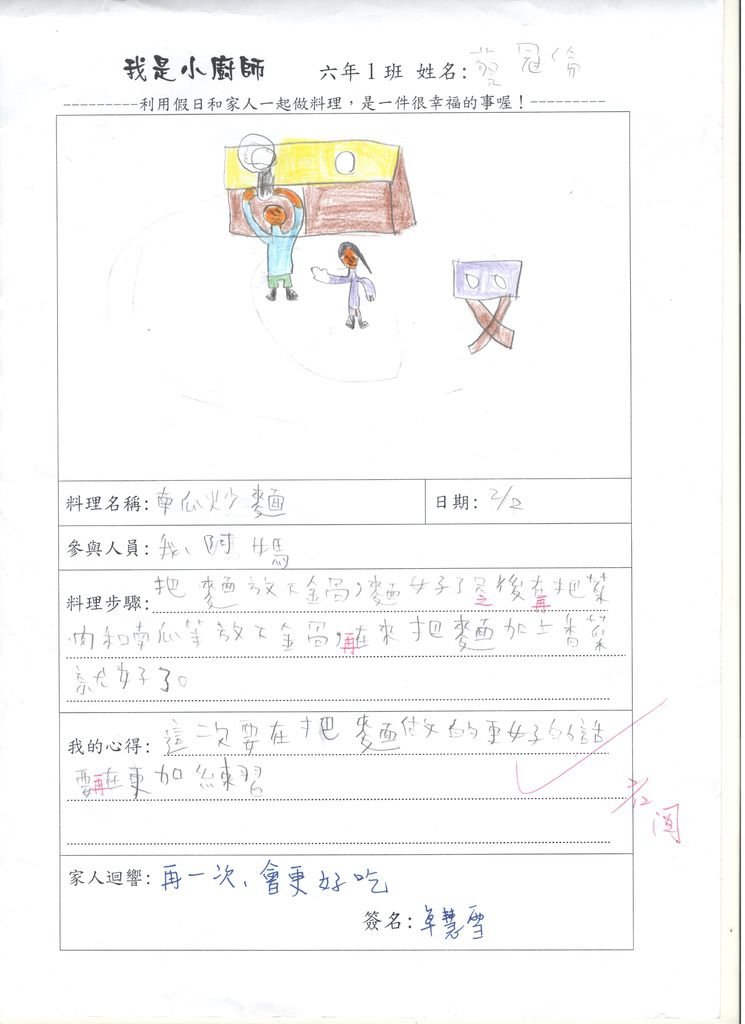 我是小廚師 六年1班 姓名: 蔡冠倫
---------利用假日和家人一起做料理，是一件很幸福的事喔！---------
料理名稱: 南瓜炒麵 日期: 2/2
參與人員: 我、阿媽
料理步驟: 把麵放下金咼，麵好了之後再把菜
肉和南瓜等放下金咼，再來把麵加上香菜
就好了。
我的心得: 這次要在把麵做的更好的話
要再更加練習
2/12 閱
家人迴響: 再一次、會更好吃
簽名: 卓慧雪